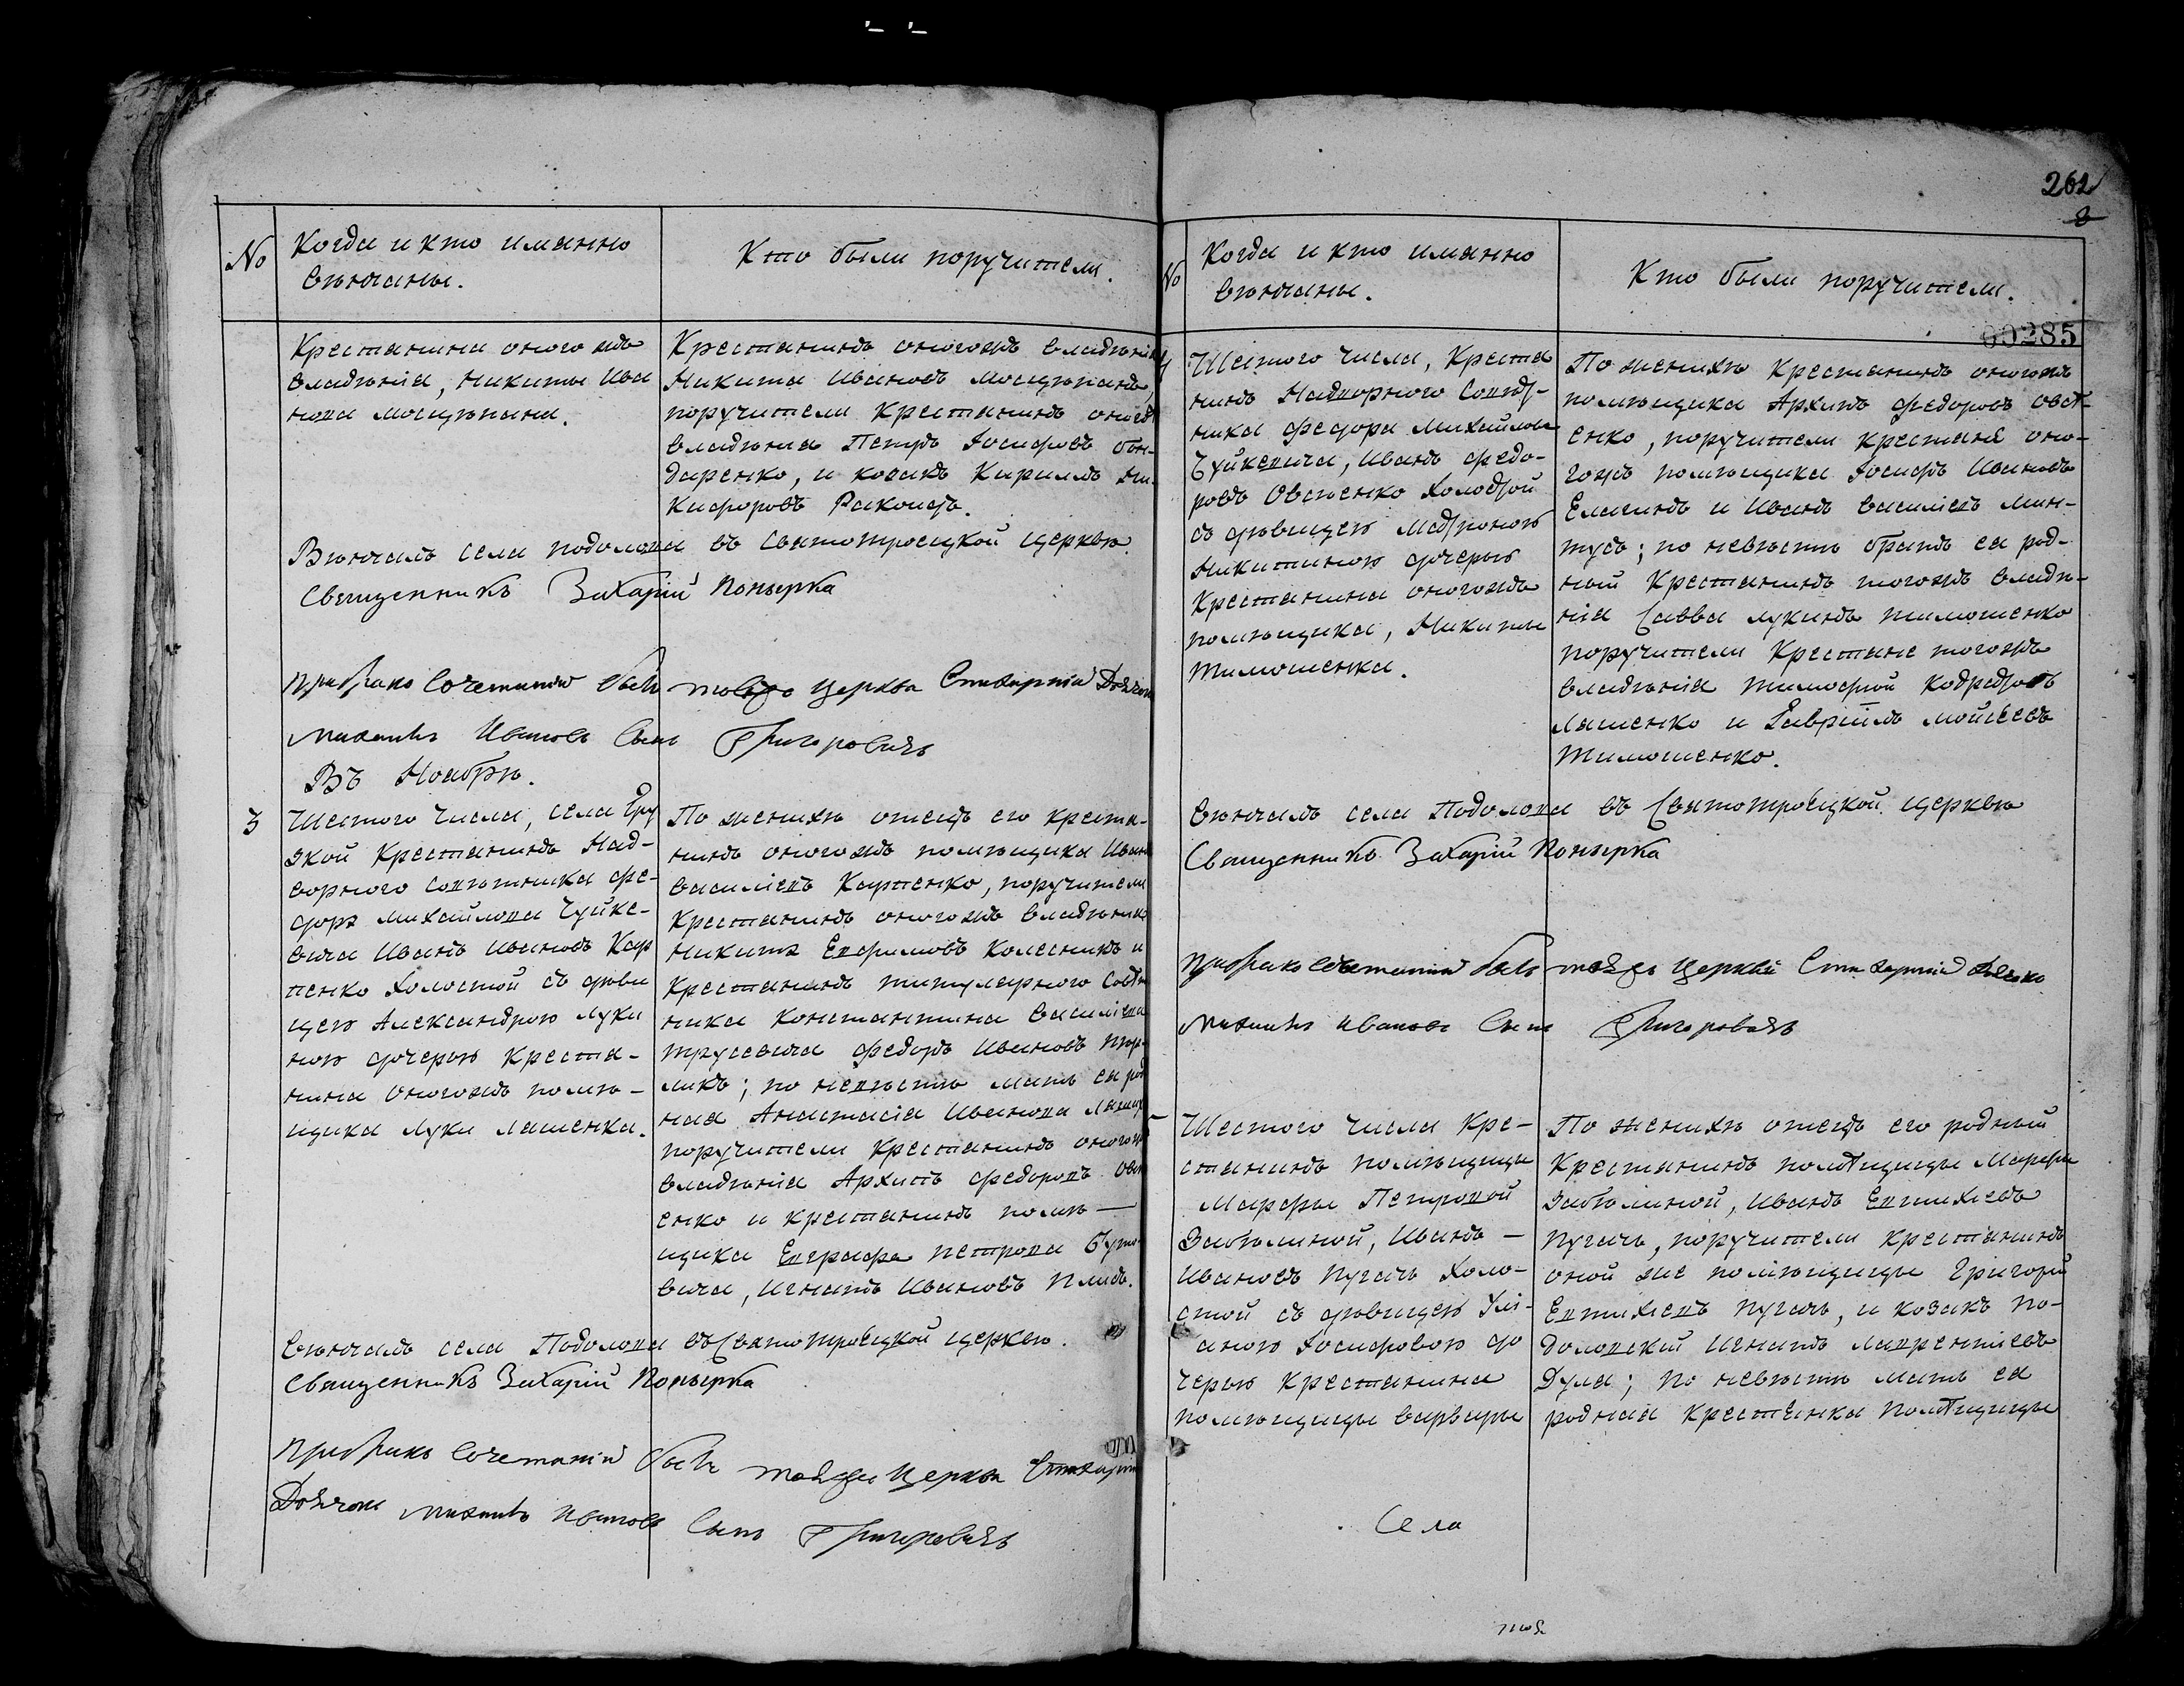 262
3
№
Когда и кто имянно
вѣнчаны.
Кто были поручители.
Крестанина оного жъ
владѣнія, Никиты Ива
нова Мосцѣпана.
Крестанинъ оногожъ владѣнія
Никита Ивановъ Мосцѣпанъ,
поручители Крестанинъ оногожъ
владѣнія Петръ Іосифовъ бон-
даренко, и козакъ Кириллъ Ни-
кифоровъ Ракоидъ.
Вѣнчалъ села подолова въ Святотроецкой церквѣ.
Священникъ Захарій Попырка
При бракосочетаніи былъ тоей же церкви Стихарній Дьячокъ
Михаилъ Ивановъ Сынъ Григоровичъ
Въ Ноябрѣ.
3
Шестого числа, села Гру
зкой Крестанинъ Над-
ворного Совѣтника Фе-
дора Михайлова Чуйке-
вича Иванъ Ивановъ Кар
пенко Холостой съ дѣви
цею Александрою Луки
ною дочерью Креста-
нина оногожъ помѣ-
щика Луки Лашенка.
По женихѣ отецъ его креста-
нинъ оногожъ помѣщика Иванъ
Василіевъ Карпенко, поручители
Крестанинъ оногожъ владѣнія
Никита Евфимовъ Колесникъ и
Крестанинъ титулярного Совѣт
ника Константина Василіева
Трусевича Федоръ Ивановъ
ликъ; по невѣстѣ мать еа род
ная Анастасіа Иванова
поручители Крестанинъ оногожъ
владѣніа Архипъ Федоровъ Овс
енко и крестанинъ помѣ-
щика Евграфа Петрова
вича, Игнатъ Ивановъ
Вѣнчалъ села Подолова въ Святотроецкой церквѣ.
Священникъ Захарій Попырка
При бракосочетаніи былъ тоей же церкви Стихарній
Дьячокъ Михаилъ Ивановъ Сынъ Григоровичъ
№
Когда и кто имянно
вѣнчаны.
Кто были поручители.
00285
4
Шестого числа, Креста
нинъ Надворного Совѣт-
ника Федора Михайлова
Чуйкевича, Иванъ Федо-
ровъ Овсіенко Холостой
съ дѣвицею Матроною
Никитиною дочерью
Крестанина оногожъ
помѣщика, Никиты
Тимошенка.
По женихѣ Крестанинъ оногожъ
помѣщика Архипъ Федоровъ Овсѣ-
енко, поручители крестанѣ оно-
гожъ помѣщика Іосифъ Ивановъ
Елагинъ и Иванъ Василіевъ Мин-
тусъ; по невѣстѣ братъ еа род-
ный Крестанинъ тогожъ владѣ-
ніа Савва Лукинъ Тимошенко
поручители Крестане тогожъ
владѣніа Тимофѣй Кодратовъ
Лашенко и Гавріилъ Мойсѣевъ
Тимошенко.
Вѣнчалъ села Подолова въ Святотроецкой церквѣ
Священникъ Захарій Попырка
При бракосочетаніи былъ тоей же церкви Стихарній Дьячокъ
Михаилъ Ивановъ Сынъ Григоровичъ
Шестого числа Кре-
станинъ помѣщицы
Марфы Петровой
Забѣлиной, Иванъ -
Ивановъ Пугачь Холо-
стой съ дѣвицею Улі-
аною Іосифовою до
черью Крестанина
помѣщицы Варвары
По женихѣ отецъ его родный
Крестанинъ помѣщицы Марфы
Забѣлиной, Иванъ Евтихіевъ
Пугачь, поручители крестанинъ
оной же помѣщицы Григорій
Евтихіевъ Пугачь, и козакъ по-
доловскій Игнатъ Лаврентіевъ
Дула; по невѣстѣ мать еа
родная крестянка помѣщицы
Села